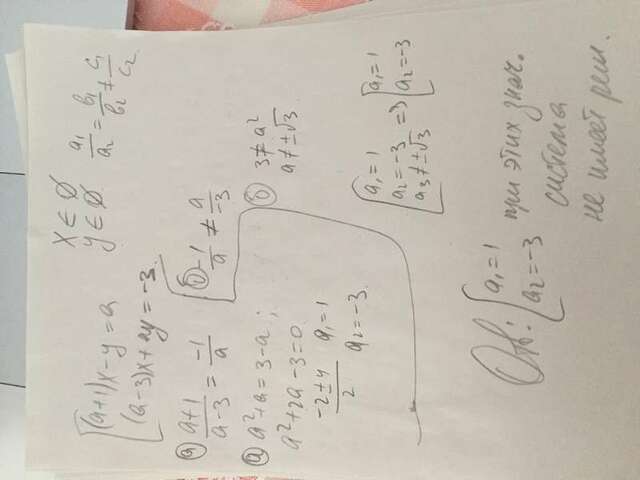 {(a+1)x-y=a
(a-3)x+ay=-3
x∈∅
y∈∅
a₁/a₂=b₁/b₂≠c₁/c₂
а) (a+1)/(a-3)=-1/a
б) -1/a≠a/-3
а) a²+a=3-a;
a²+2a-3=0
(-2±4)/2 a₁=1
a₂=-3
б) 3≠a²
a≠±√3
[a₁=1
a₂=-3
a₃≠±√3
=>[a₁=1
a₂=-3
Отв: [a₁=1
a₂=-3
при этих знач.
система
не имеет реш.